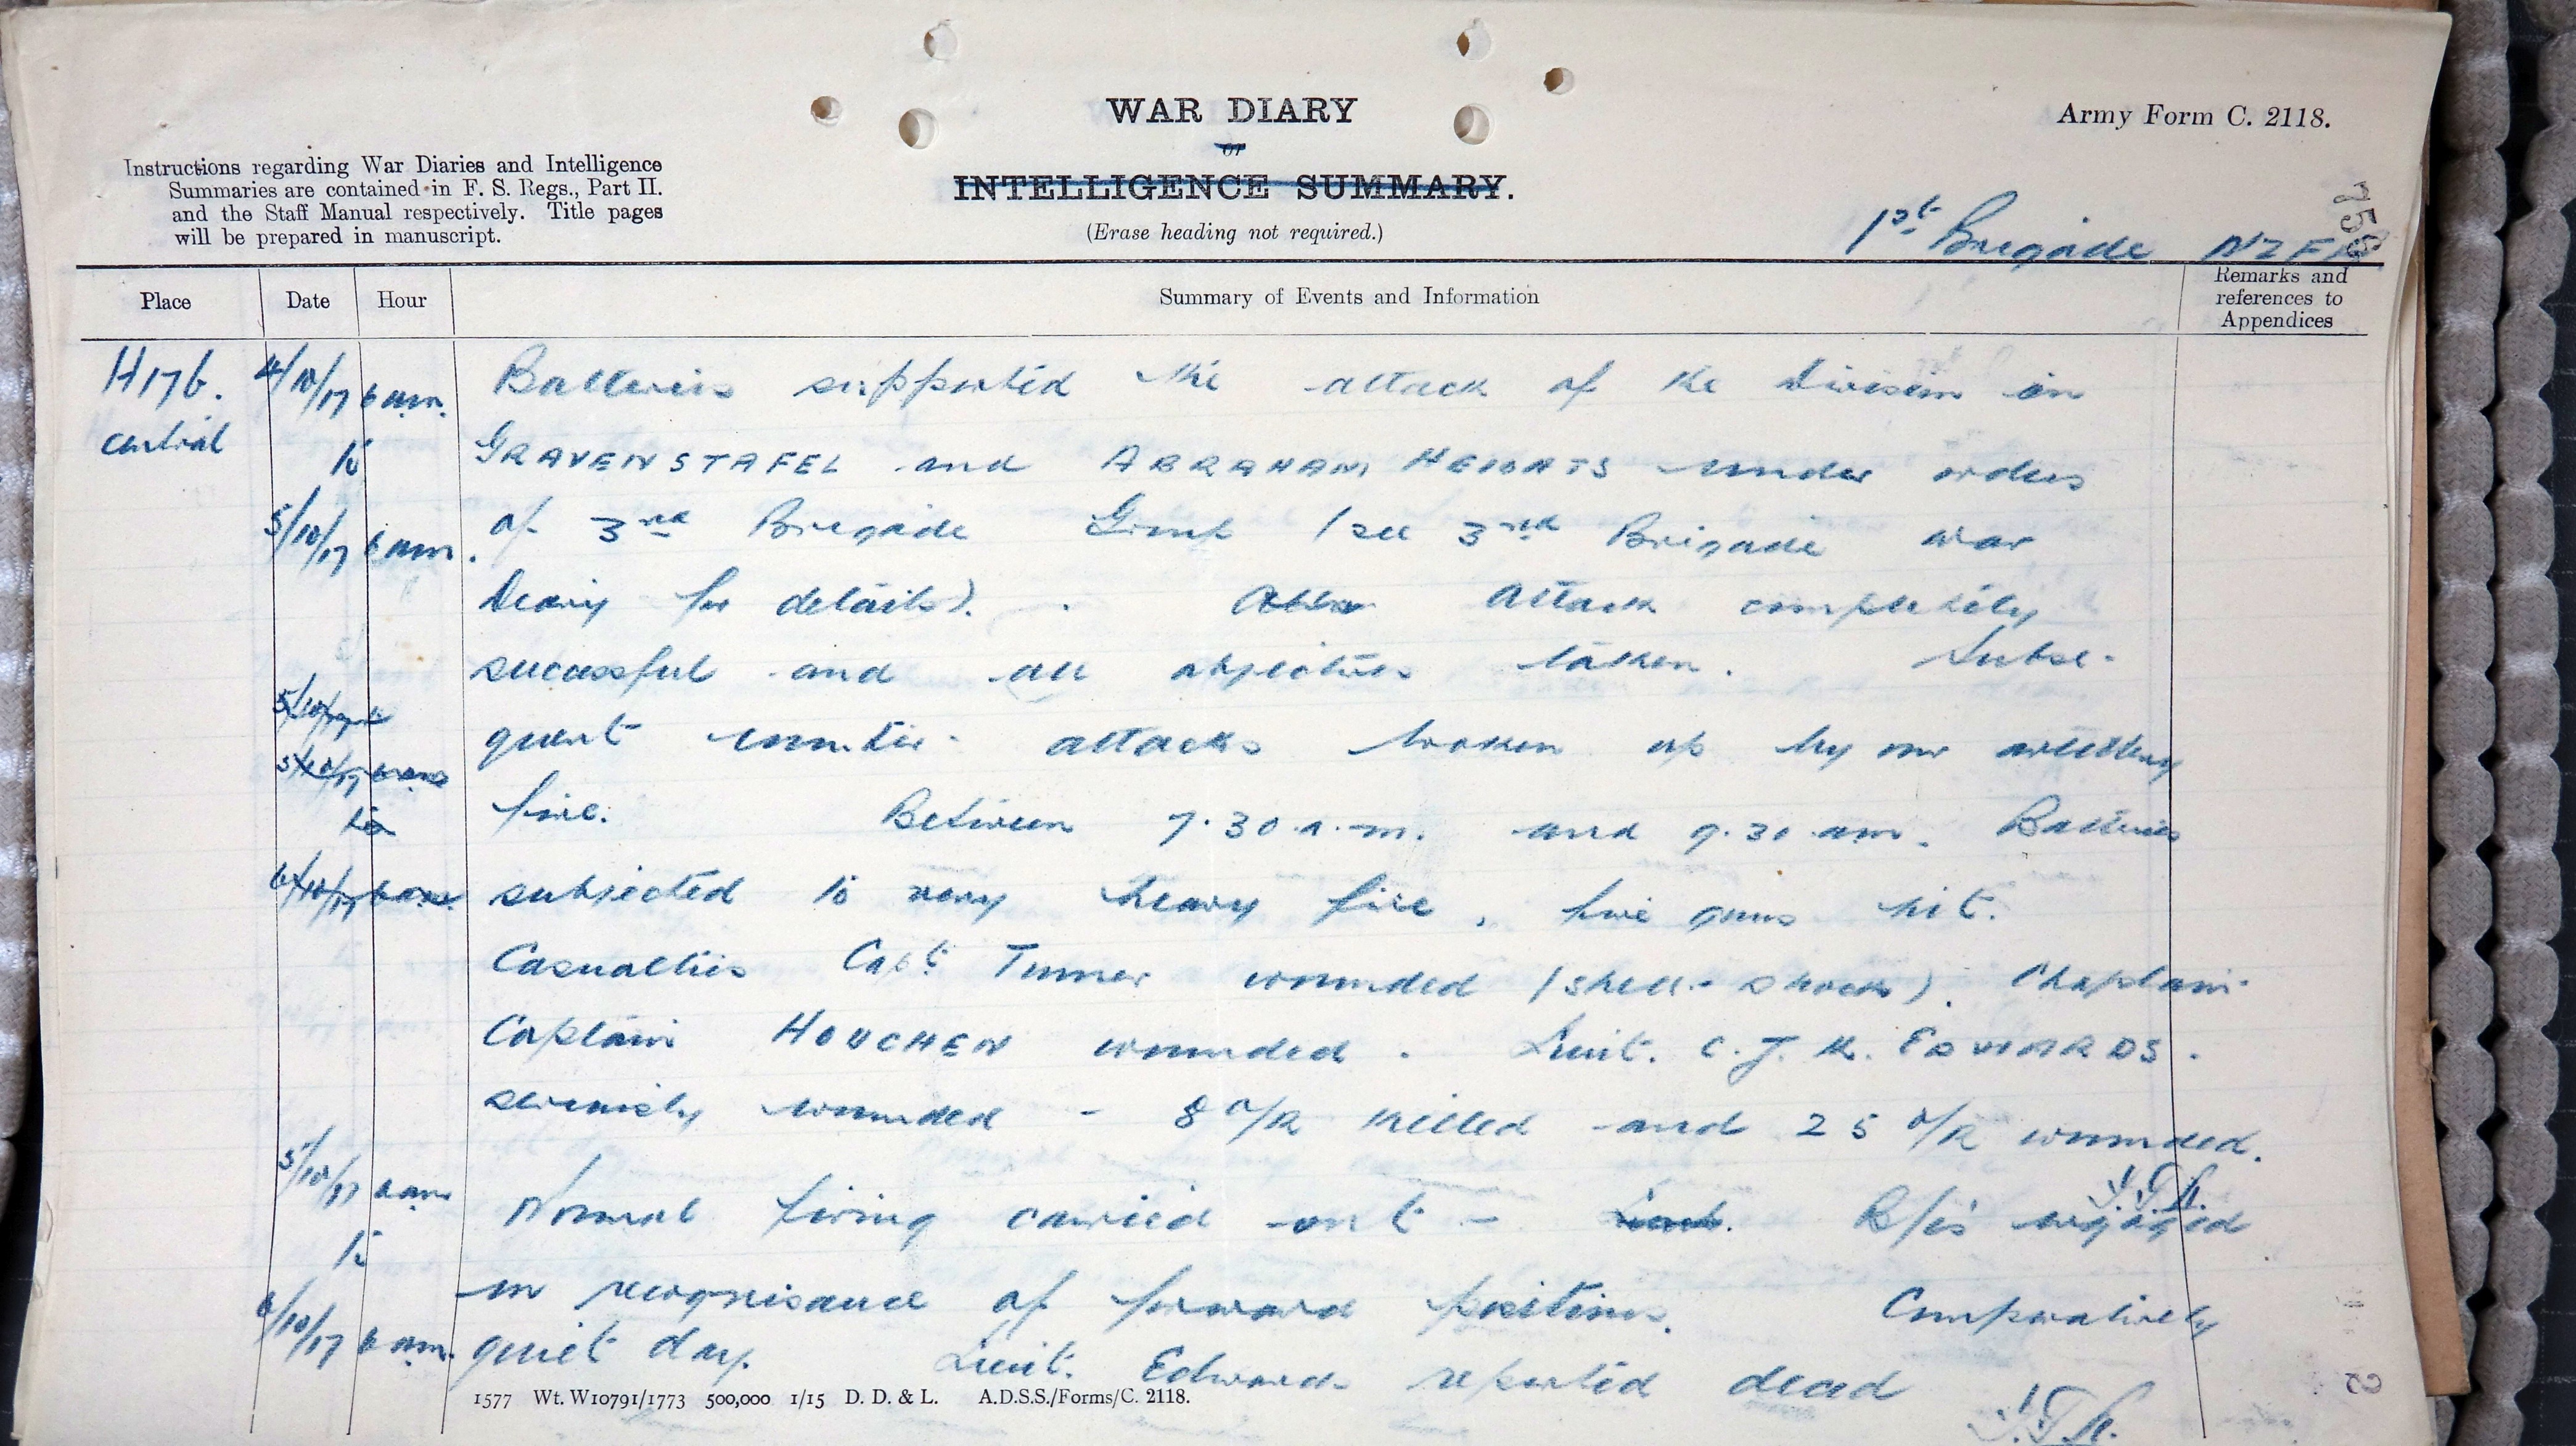 WAR DIARY
or
INTELLIGENCE SUMMARY.
(Erase heading not required.)
Army Form C. 2118.
Instructions regarding War Diaries and Intelligence
Summaries are contained in F. S. Regs., Part II.
and the Staff Manual respectively. Title pages
will be prepared in manuscript.
1st Brigade NZFA
758
Place Date Hour Summary of Events and Information Remarks and references to Appendices
H17b. 4/10/17 6 am. Batteries supported the attack of the Division on
central to GRAVENSTAFEL and ABRAHAM HEIGHTS under orders
5/10/17 6 am. of 3rd Brigade Group (see 3rd Brigade war
Diary for details). Attack completely
successful and all objectives taken. Subse-
quent counter-attacks broken up by our artillery
5/10/17 6 am fire. Between 7.30 a.m. and 9.30 am. Batteries
to
6/10/17 6 am subjected to very heavy fire, five guns hit.
Casualties Capt. Turner wounded (shell-shock). Chaplain-
Captain HOUCHEN wounded. Lieut. C.J.K. EDWARDS.
seriously wounded - 8 O/R killed and 25 O/R wounded.
5/10/17 6 am Normal firing carried out - B/C's engaged
to
in recognisance of forward positions. Comparatively
6/10/17 6 am. quiet day. Lieut. Edwards reported dead
1577 Wt. W10791/1773 500,000 1/15 D. D. & L. A.D.S.S./Forms/C. 2118.